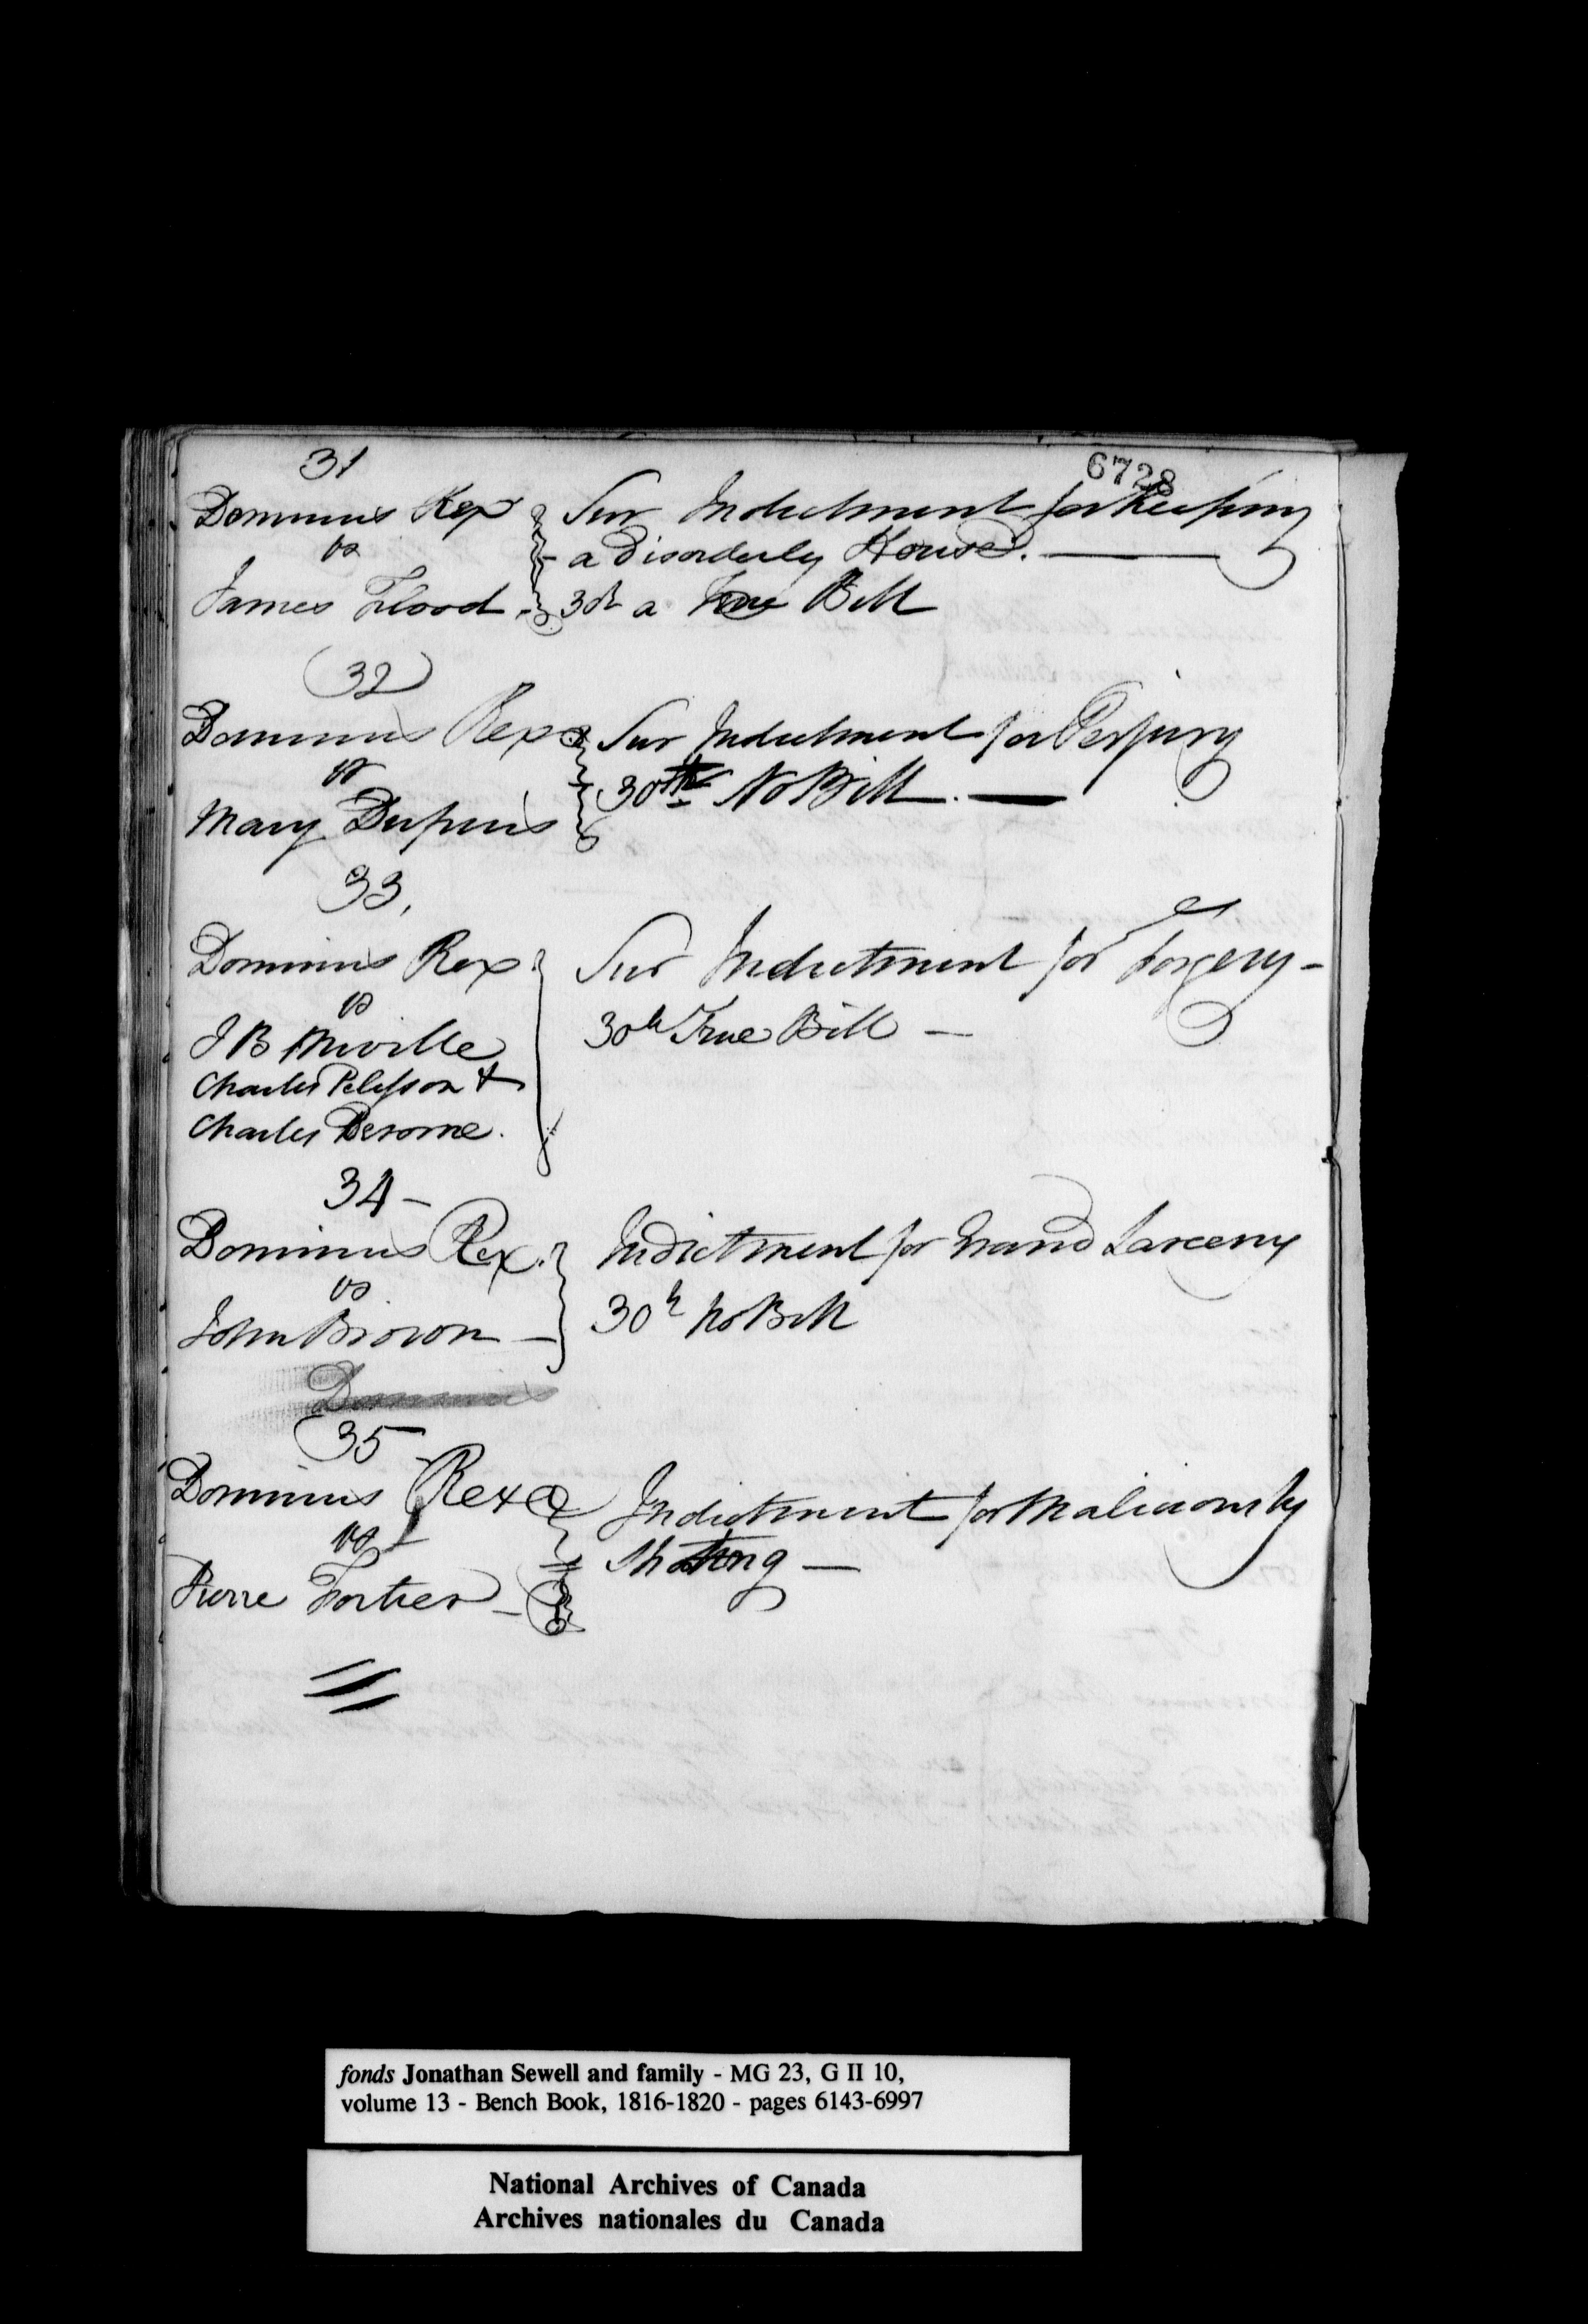 6728
31
Dominus Rex Sur Indictment for Keeping
vs a Disorderly House.
James Flood. 30th a True Bill
32
Dominus Rex Sur Indictment for Perjury
vs 30th No Bill.
Mary Dupuis
33,
Dominus Rex Sur Indictment for Forgery -
vs 30th True Bill -
J B Miville
Charles Pelisson &
Charles Derome.
34 -
Dominus Rex. Indictment for Grand Larceny
vs 30th No Bill
John Brown -
Dominus
35 -
Dominus Rex Indictment for Maliciously
vs Shooting -
Pierre Fortier -
fonds Jonathan Sewell and family - MG 23, G II 10,
volume 13 - Bench Book, 1816-1820 - pages 6143-6997
National Archives of Canada
Archives nationales du Canada